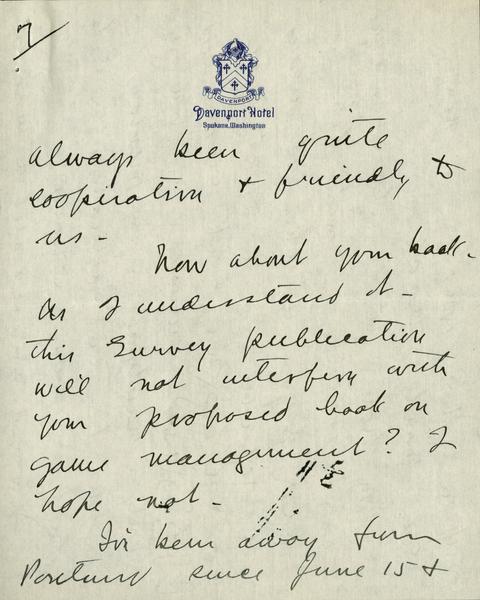 7
DAVENPORT
Davenport Hotel
Spokane, Washington
always been quite
cooperation + friendly to
us -
Now about your book -
As I understand it -
this Survey publication
will not interfere with
your proposed book on
game management? I
hope not -
I've been away from
Portland since June 15 +